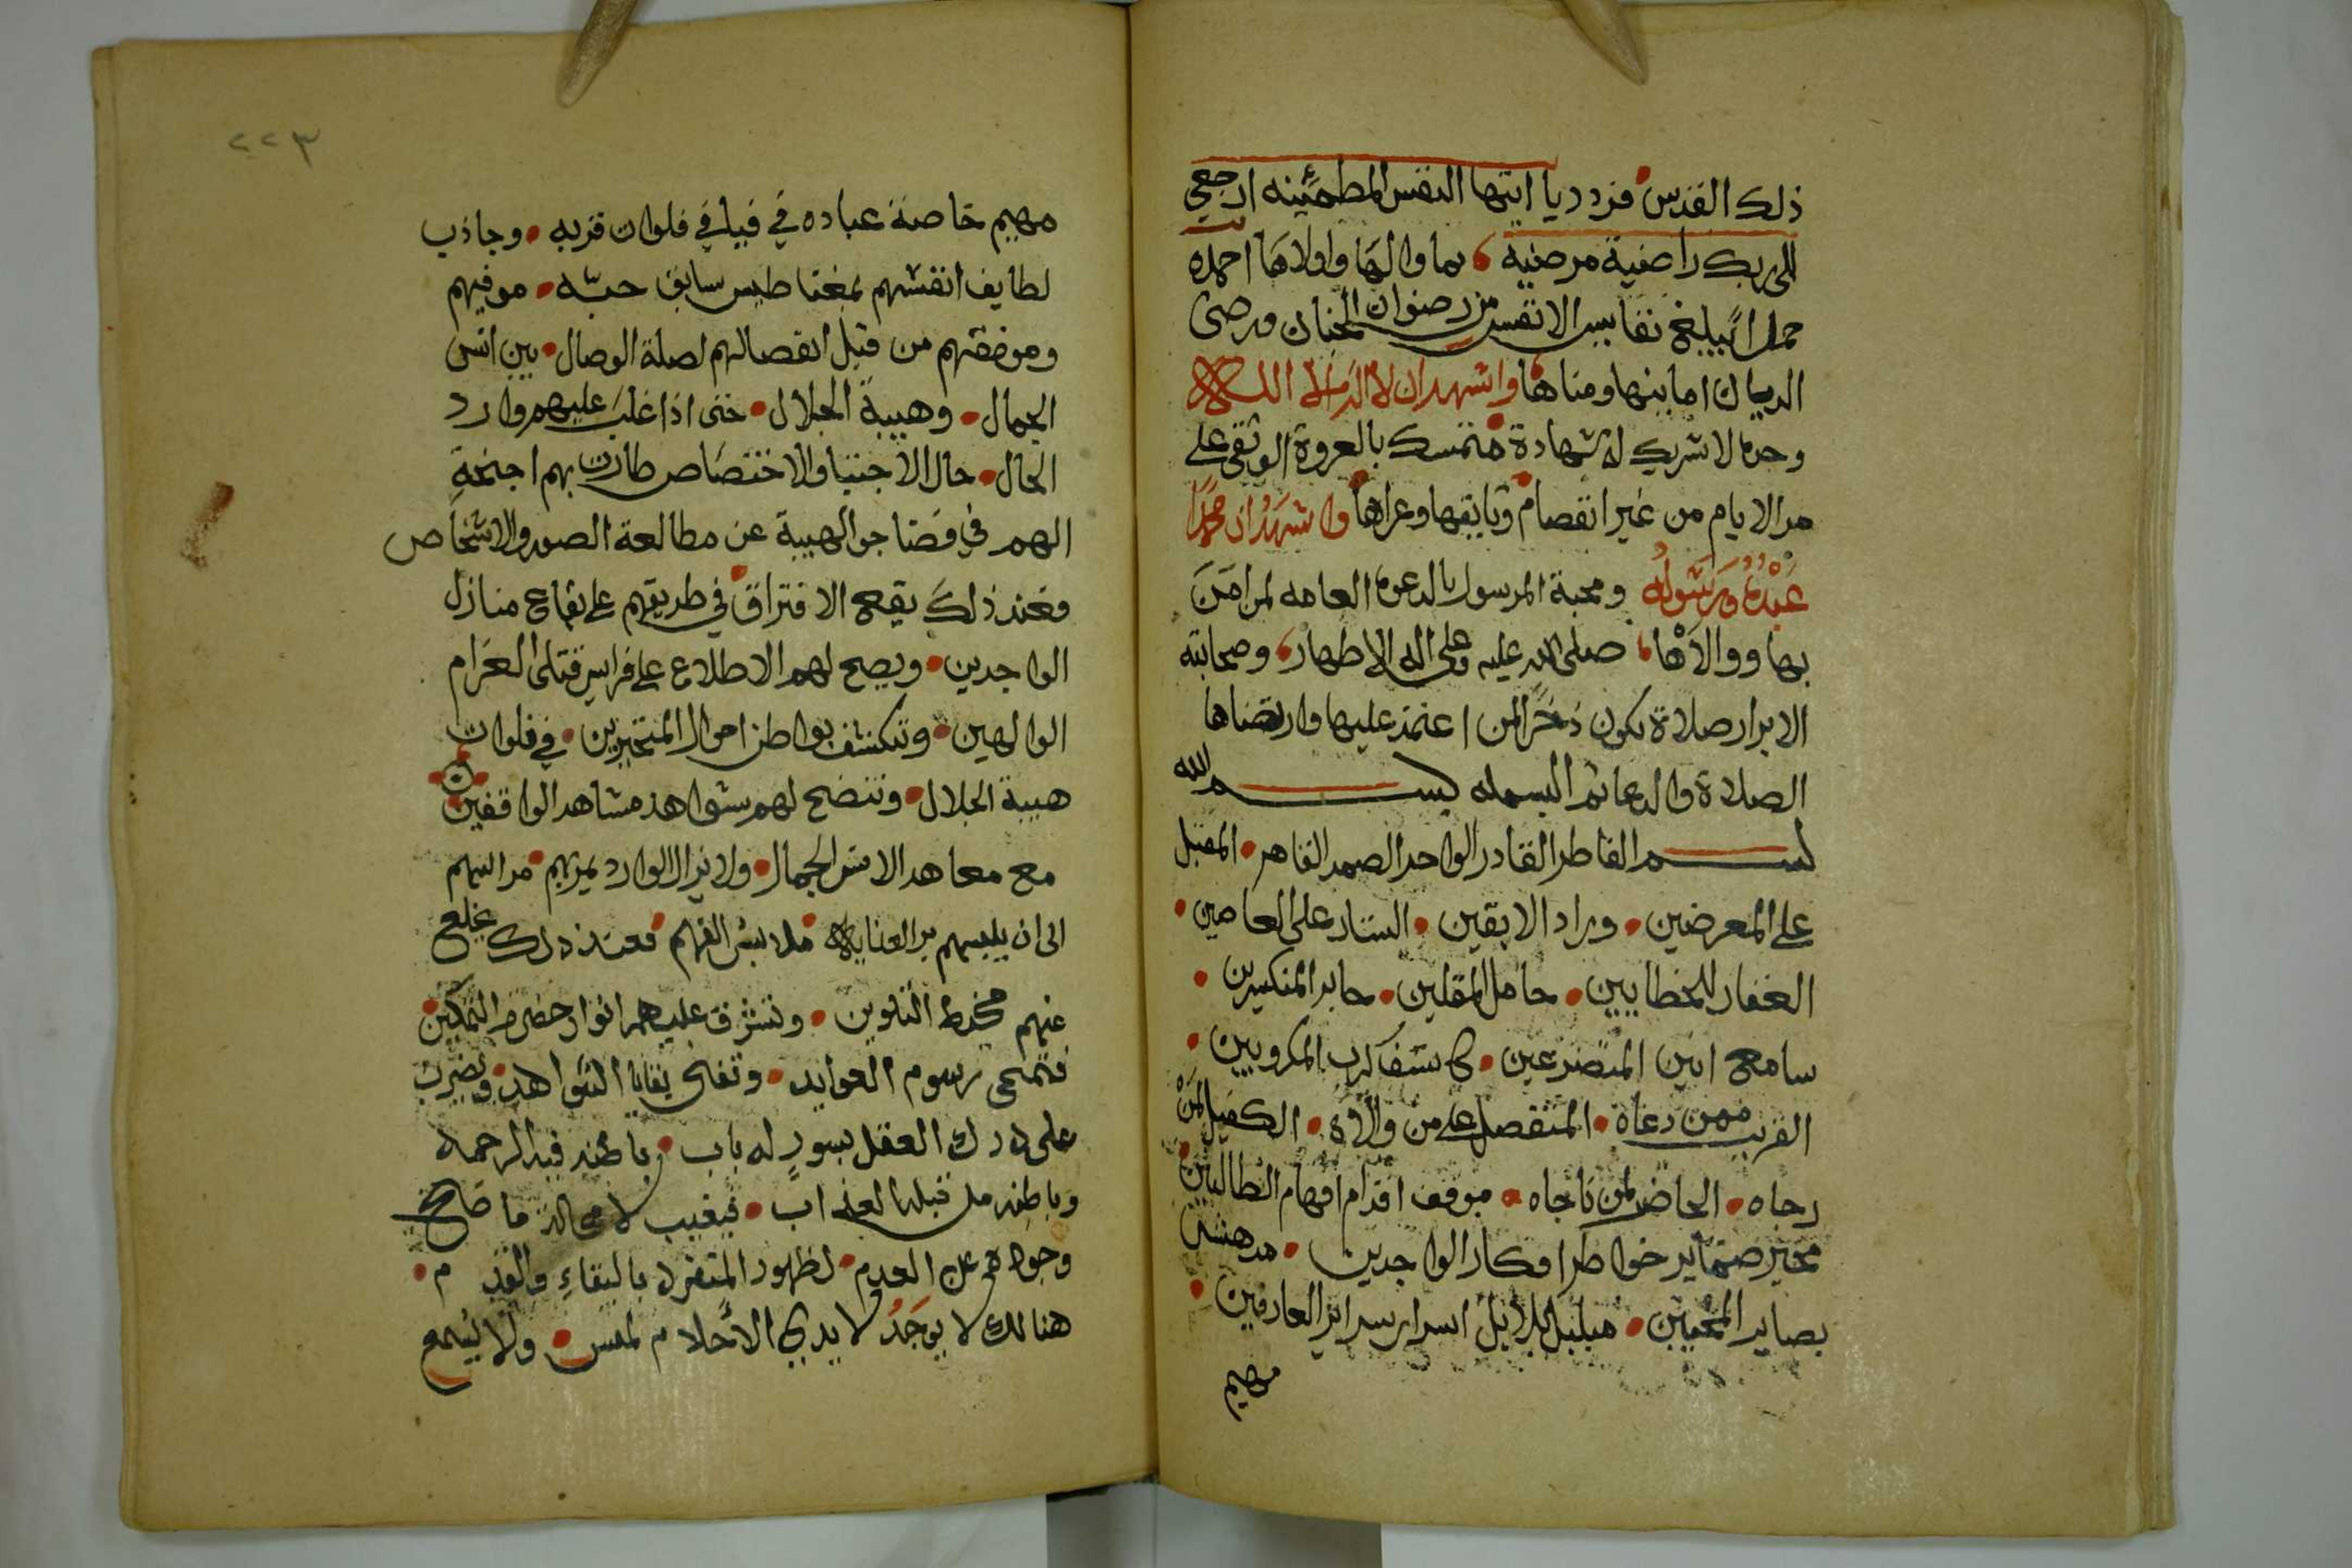 ذلك القدس فردد يا ايتها النفس المطمئينه ارجعي
الى ربك راضية مرضية بما والها واولاها احمده
حمدا يبلغ نفايس الانفس من رضوان الجنان ورضى
الديان امانيها ومناها واشهد ان لا اله الا الله
وحده لا شريك له شهادة متمسك بالعروة الوثقى على
مر الايام من غير انفصام وثايقها وعراها واشهد ان محمدا
عبده ورسوله ومحبة المرسول بالدعوه العامه لمن امن
بها ووالاها صلى الله عليه وعلى اله الاطهار وصحابته
الابرار صلاة تكون ذخرا لمن اعتمد عليها وارتضاها
الصلاة والدعا ثم البسمله بسم الله
بسم الفاطر القادر الواحد الصمد القاهر المقبل
على المعرضين وراد الابقين الستار على العاصين
الغفار للخطايين حامل المقلين جابر المنكسرين
سامع انين المتضرعين كاشف كرب المكروبين
القريب ممن دعاه المتفضل على من والاه الكفيل لمن
رجاه الحاضر لمن ناجاه موقف اقدام افهام الطالبين
محير ضماير خواطر افكار الواجدين مدهش
بصاير المحبين مبلبل بلابل اسرار سراير العارفين
مهيم
٢٢٣
مهيم خاصة عباده في فيافي فلوات قربه وجاذب
لطايف انفسهم بمغناطيس سابق حبه موفيهم
وموفقهم من قبل انفصالهم لصلة الوصال بين انس
الجمال وهيبة الجلال حتى اذا غلب عليهم وارد
الحال حال الاجتبا والاختصاص طارت بهم اجنحة
الهمم في فضا جو الهيبة عن مطالعة الصور والاشخاص
فعند ذلك يقع الافتراق في طريقهم على بقاع منازل
الواجدين ويصح لهم الاطلاع على فراس قتلى الغرام
الوالهين وتنكشف بواطن احوال المتحيرين في فلوات
هيبة الجلال وتتضح لهم شواهد مشاهد الواقفين
مع معاهد الانس الجمال ولا يزال الوارد يميزهم مراتبهم
الى ان يلبسهم يد العناية ملابس الفهم فعند ذلك يخلع
عنهم مخيط التلوين وتشرق عليهم انوار حضرة التمكين
فتمحى رسوم العوايد وتفنى بقايا الشواهد ويضرب
على درك العقل بسور له باب باطنه فيه الرحمة
وباطنه من قبله العذاب فيغيب لا محالة ما صح
وجوده عن العدم لظهور المتفرد بالبقاء والقدم
هنالك لا يوجد لا يدي الاحلام لمس ولا يسمع